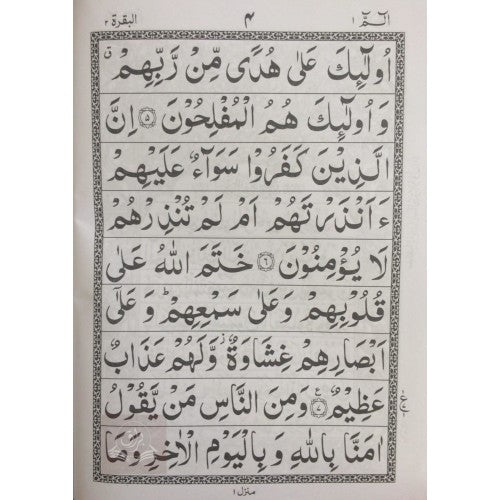 الٓمّٓ ١ ۴ البقرة ٢
اُولٰٓئِكَ عَلٰى هُدًى مِّنْ رَّبِّهِمْ ق
وَ اُولٰٓئِكَ هُمُ الْمُفْلِحُوْنَ ۵ اِنَّ
الَّذِيْنَ كَفَرُوْا سَوَآءٌ عَلَيْهِمْ
ءَ اَنْذَرْتَهُمْ اَمْ لَمْ تُنْذِرْهُمْ
لَا يُؤْمِنُوْنَ ۶ خَتَمَ اللّٰهُ عَلٰى
قُلُوْبِهِمْ وَ عَلٰى سَمْعِهِمْ ؕ وَ عَلٰٓى
اَبْصَارِهِمْ غِشَاوَةٌ ؗ وَّ لَهُمْ عَذَابٌ
عَظِيْمٌ ۷ ع وَ مِنَ النَّاسِ مَنْ يَّقُوْلُ
اٰمَنَّا بِاللّٰهِ وَ بِالْيَوْمِ الْاٰخِرِ وَ مَا
منزل ١